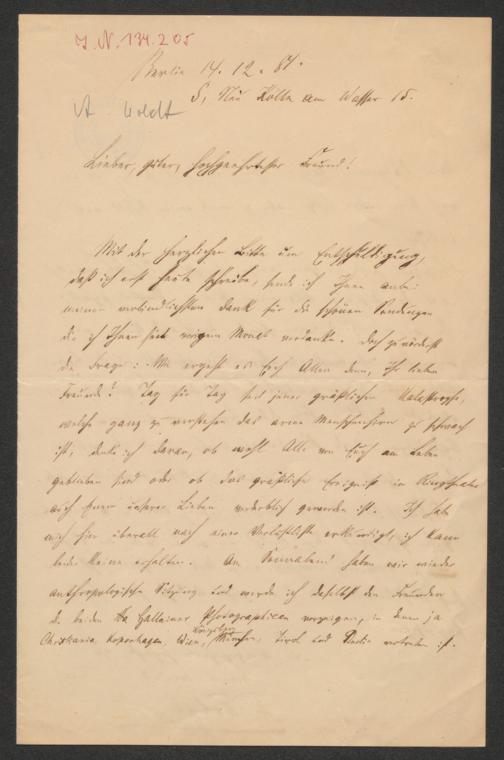 I. N. 134.205
Berlin 14. 12. 81.
S, Neu Kölln am Wasser 15.
A Woldt
Lieber, guter, hochgeehrtester Freund!
Mit der herzlichen Bitte um Entschuldigung,
daß ich erst heute schreibe, sende ich Ihnen anbei
meinen verbindlichsten Dank für die schönen Sendungen
die ich Ihnen seit vorigem Monat verdanke. Doch zunächst
die Frage: Wie ergeht es Euch Allen denn, Ihr lieben
Freunde? Tag für Tag seit jener gräßlichen Katastrophe,
welche ganz zu verstehen das arme Menschenhirn zu schwach
ist, denke ich daran, ob wohl Alle von Euch am Leben
geblieben sind oder ob das gräßliche Ereigniß im Ringtheater
auch Einem unserer Lieben verderblich geworden ist. Ich habe
mich hier überall nach einer Verlustliste erkundigt, ich kann
leider keine erhalten. Am Sonnabend haben wir wieder
anthropologische Sitzung und werde ich daselbst den Freunden
die beiden Hallsteiner Photographien vorzeigen, in denen ja
Christiania, Kopenhagen, Wien, München, Tirol und Berlin vertreten ist.